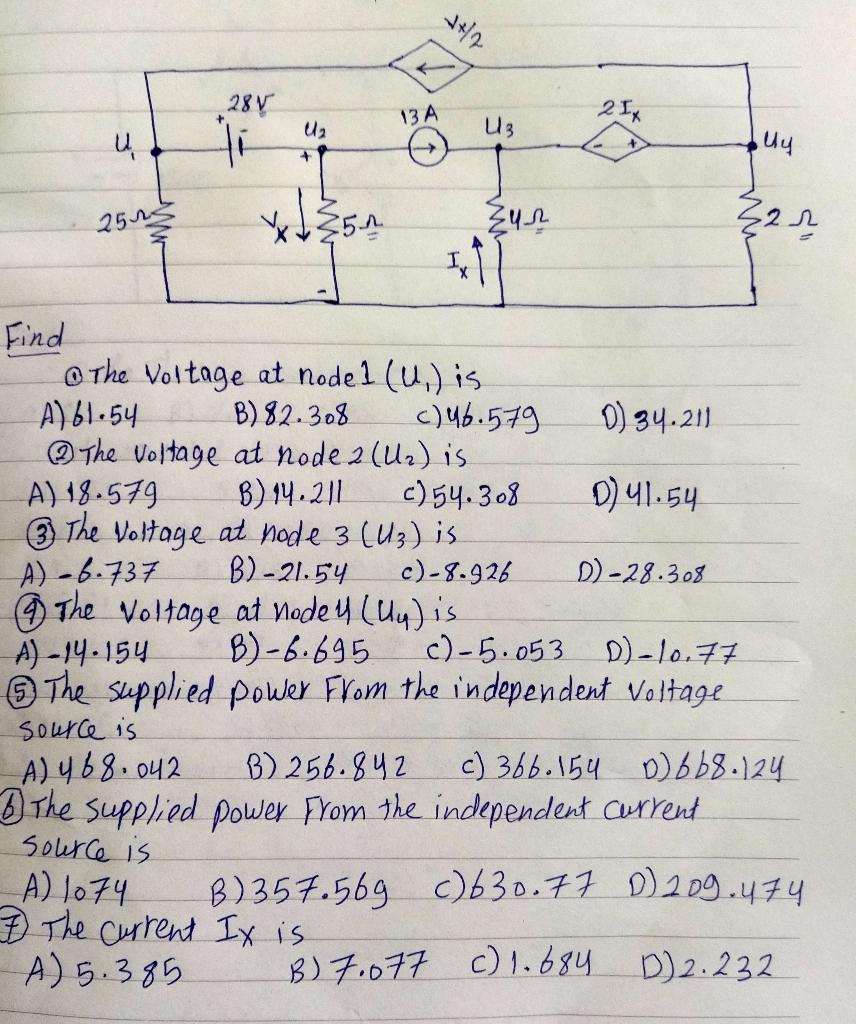 Vx/2
28V
+
U1
U2
+
13A
U3
2Ix
- +
U4
25Ω
Vx
5Ω
4Ω
Ix
2Ω
-
Find
① The Voltage at node1 (U1) is
A) 61.54 B) 82.308 C) 46.579 D) 34.211
② The Voltage at node 2 (U2) is
A) 18.579 B) 14.211 C) 54.308 D) 41.54
③ The Voltage at node 3 (U3) is
A) -6.737 B) -21.54 C) -8.926 D) -28.308
④ The Voltage at node 4 (U4) is
A) -14.154 B) -6.695 C) -5.053 D) -10.77
⑤ The supplied power From the independent Voltage
source is
A) 468.042 B) 256.842 C) 366.154 D) 668.124
⑥ The supplied power From the independent current
source is
A) 1074 B) 357.569 C) 630.77 D) 209.474
⑦ The current Ix is
A) 5.385 B) 7.077 C) 1.684 D) 2.232